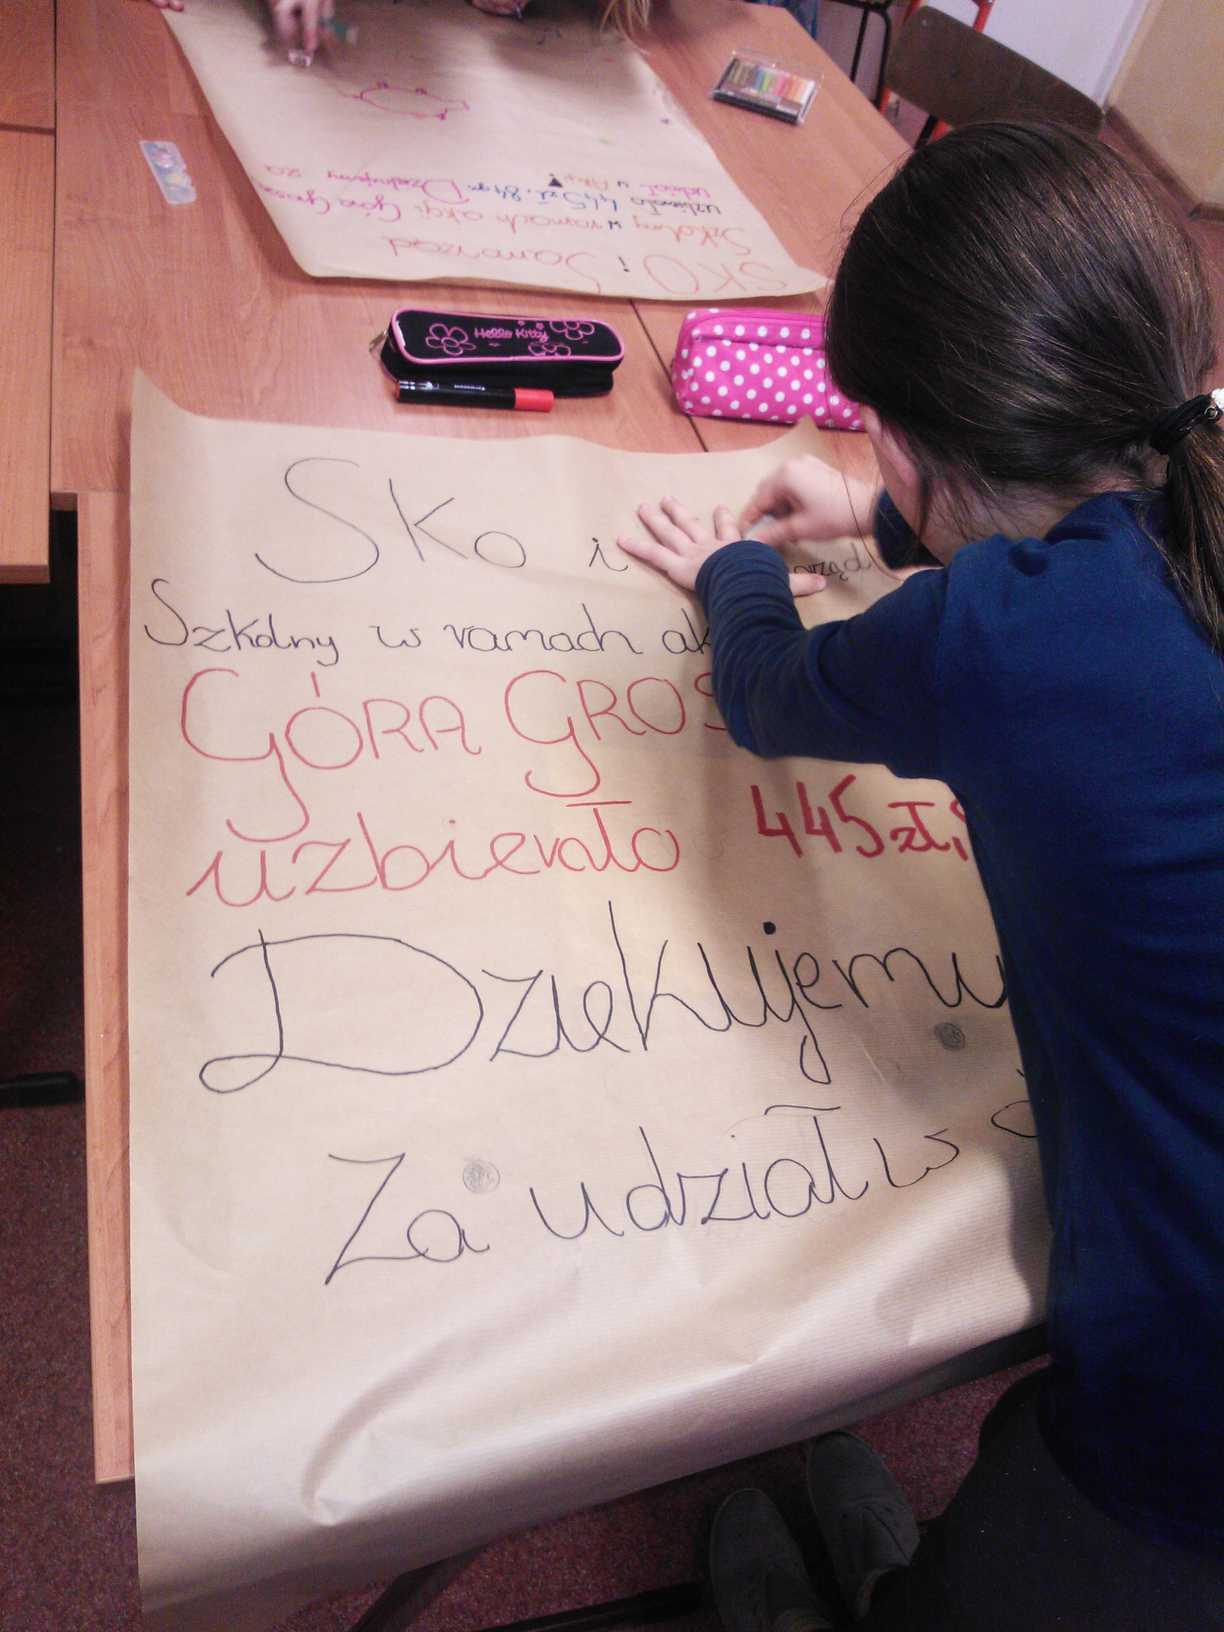 SKO i Samorząd
Szkolny w ramach akcji Góra Grosza
uzbierało 445 zł. 84 gr. Dziękujemy za
udział w Akcji!
Hello Kitty
Sko i
Szkolny w ramach
GÓRA
uzbierało 445 zł,
Dziekujemy
Za udział w